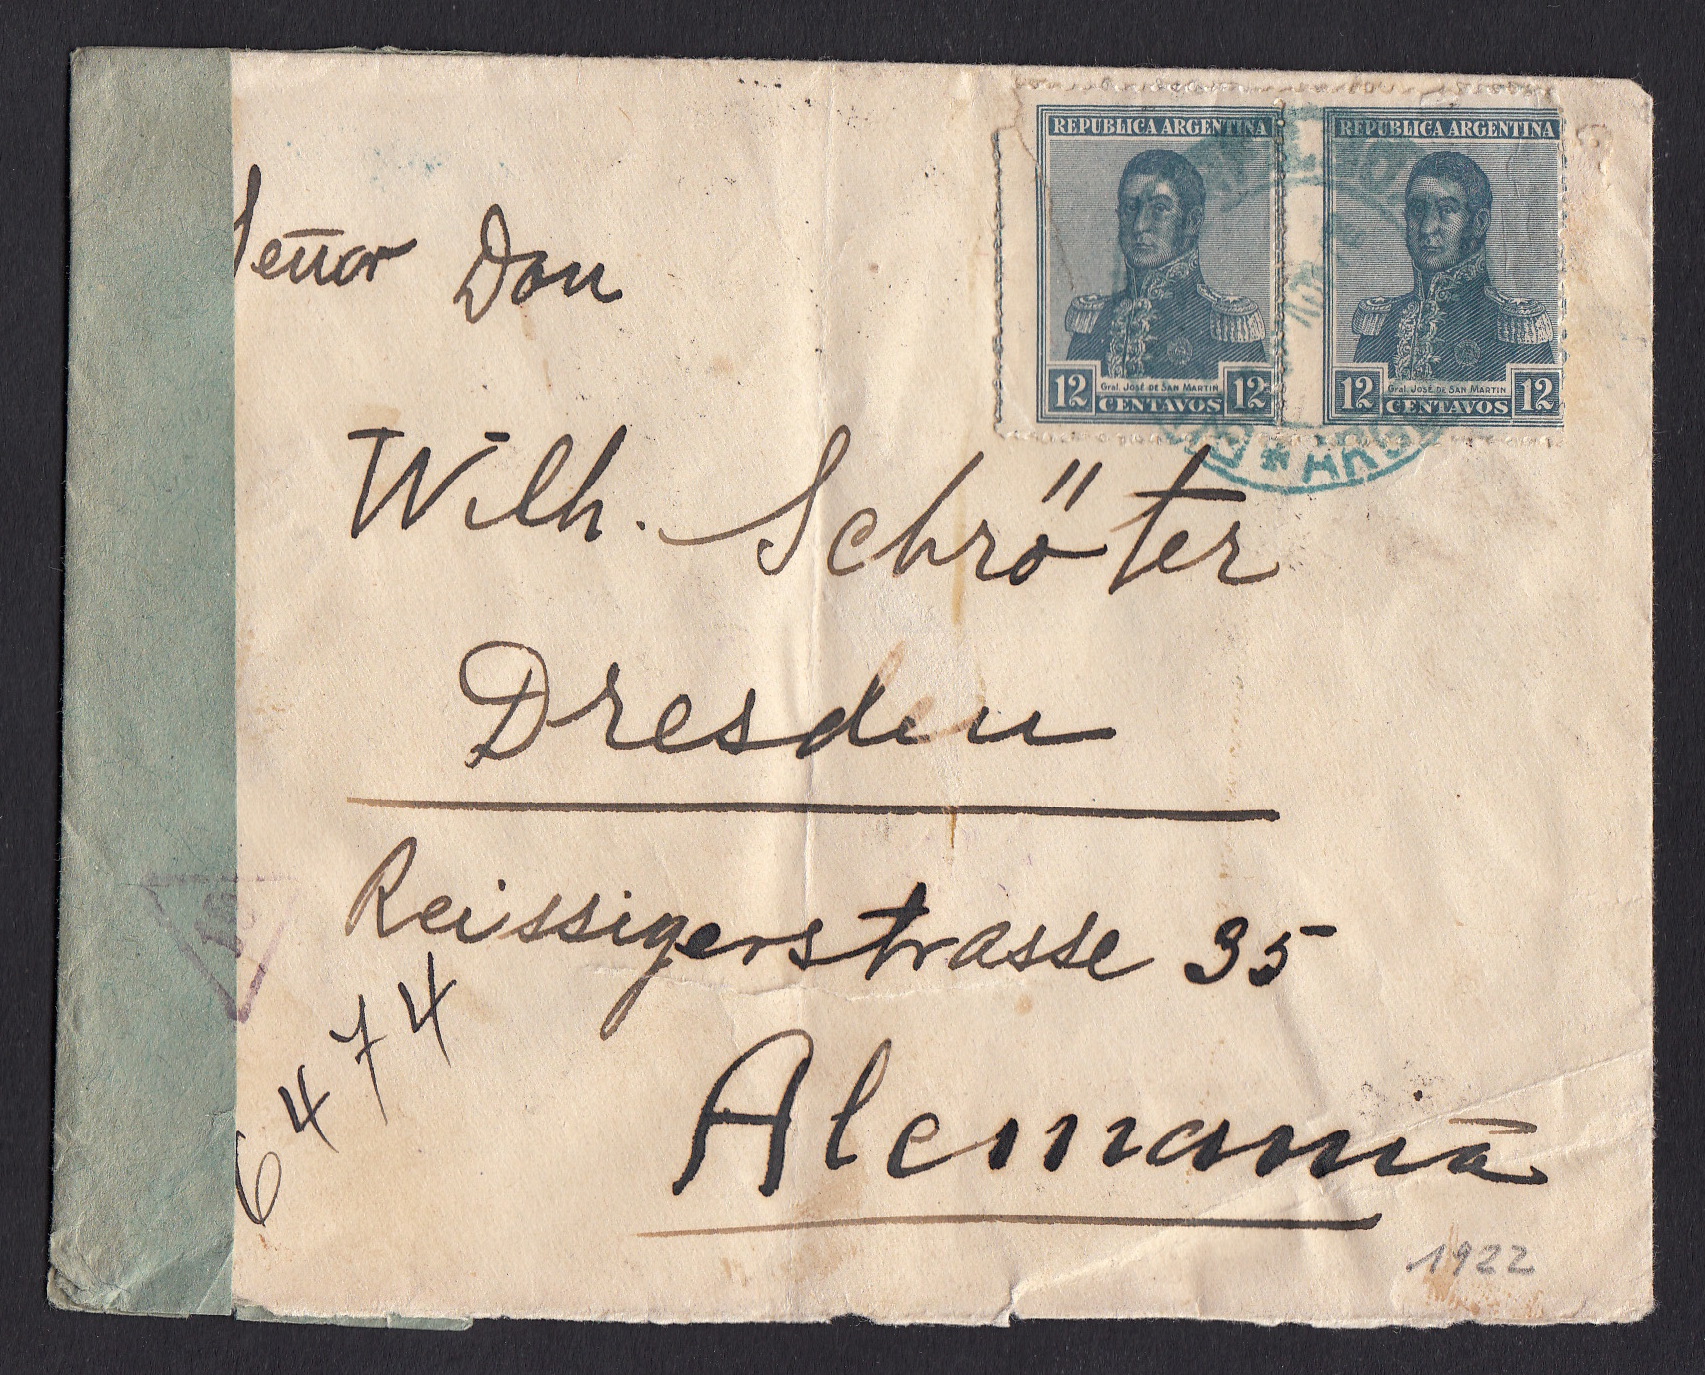 REPUBLICA ARGENTINA REPUBLICA ARGENTINA
12 Gral. José de San Martin 12 12 Gral. José de San Martin 12
CENTAVOS CENTAVOS
Señor Don
Wilh. Schröter
Dresden
Reissigerstrasse 35
6474
Alemania
1922